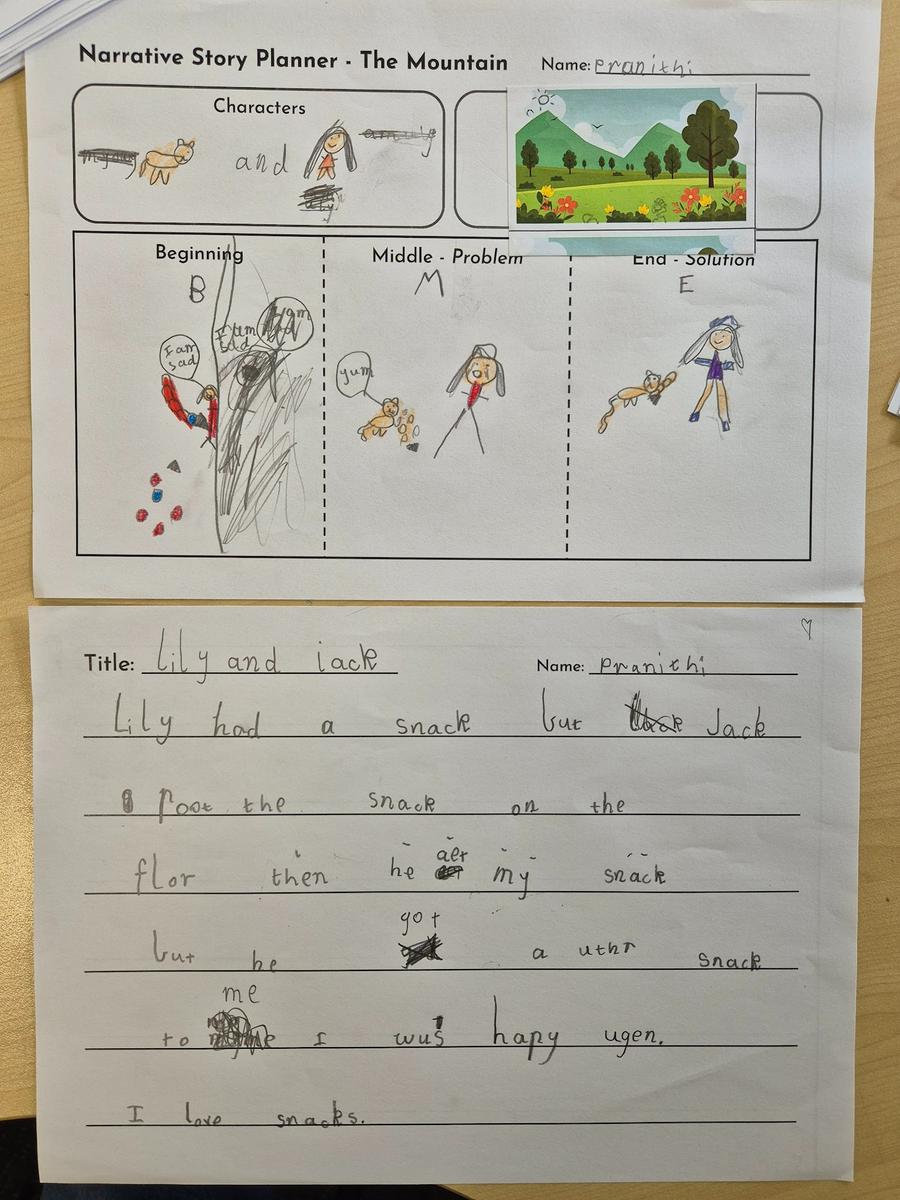 Narrative Story Planner - The Mountain Name: Pranithi
Characters
and
Beginning
B
I am sad
I am sad
Middle - Problem
M
yum
End - Solution
E
Title: Lily and iack
Name: Pranithi
Lily had a snack but Jack
Poot the snack on the
flor then he aet my snack
but he got a uthr snack
to me I wus hapy ugen.
I love snacks.